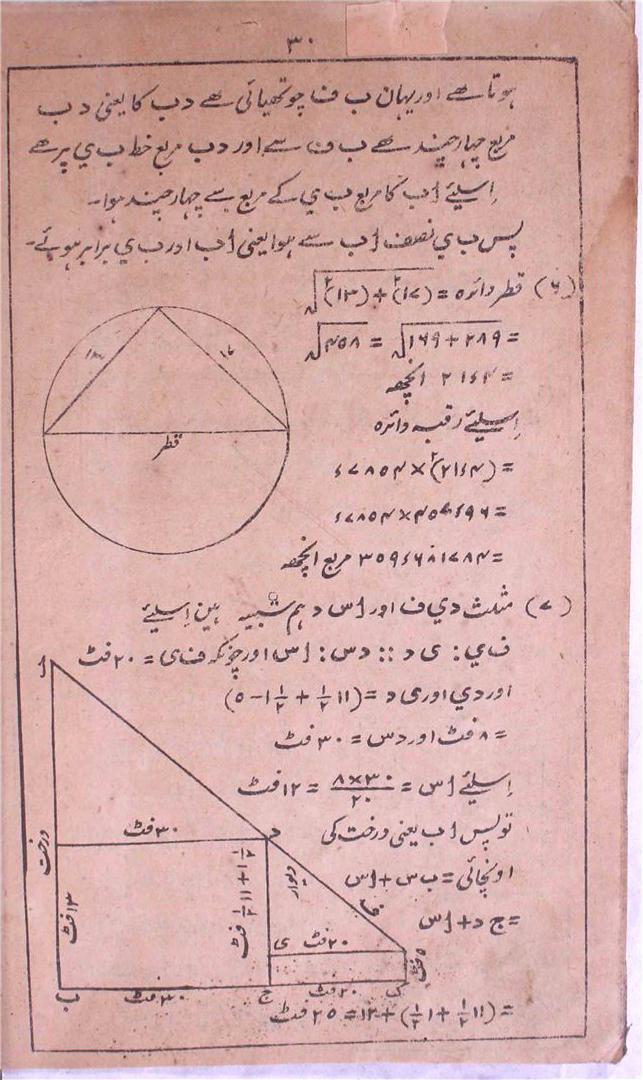 ۳۰
ہوتا ہے اور یہاں ب ف چوتھیائی ہے د ب کا یعنی د ب
مربع چہار چند ہے ب ف سے اور د ب مربع خط ب ي پر ہے
اِسلیٔے اب کا مربع ب ي کے مربع سے چہار چند ہوا۔
پس ب ي نصف اب سے ہوا یعنی اب اور ب ي برابر ہوئے۔
(۶) قطر دائرہ = √(۱۷)۲ + (۱۳)۲
= √۲۸۹ + ۱۶۹ = √۴۵۸
= ۲۱ء۴ انچھہ
اِسلیٔے رقبہ دائرہ
= (۲۱ء۴)۲ × ء۷۸۵۴
= ۴۵۷ء۹۶ × ء۷۸۵۴
= ۳۵۹ء۶۸۱۷۸۴ مربع انچھہ
۱۳
۱۷
قطر
(۷) مثلث د ي ف اور ا س د ہم شبیہ ہین اِسلیٔے
ف ي : ی د :: د س : ا س اور چونکہ ف ی = ۲۰ فٹ
اور د ي اور ی د = (۱۱ ۱/۲ + ۱ ۱/۲ − ۵)
= ۸ فٹ اور د س = ۳۰ فٹ
اِسلیٔے ا س = ۳۰×۸/۲۰ = ۱۲ فٹ
تو پس اب یعنی درخت کی
اونچائی = ب س + ا س
= ج د + ا س
= (۱۱ ۱/۲ + ۱ ۱/۲) + ۱۲ = ۲۵ فٹ
درخت
۳۰ فٹ
د
دیوار
ف
۱۳ فٹ
۱۱ ۱/۲ + ۱ ۱/۲ فٹ
ی
۲۰ فٹ
۵ فٹ
ب
۳۰ فٹ
ج
۲۰ فٹ